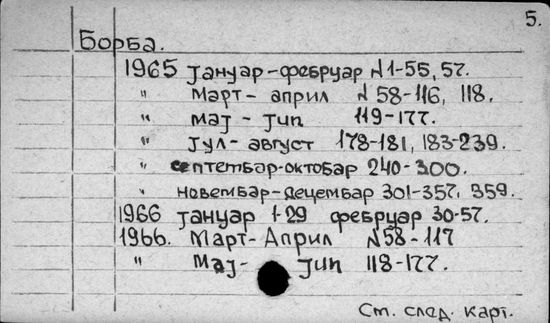 5.
Борба.
1965 јануар-фебруар N1-55, 57.
" Март- април N 58-116, 118.
" мај - јип 119-177.
" јул- август 178-181, 183-239.
" септембар-октобар 240-300.
" новембар-децембар 301-357. 359.
1966 јануар 1-29 фебруар 30-57.
1966. Март-Април N58-117
" Мај- јип 118-177.
См. след. карт.